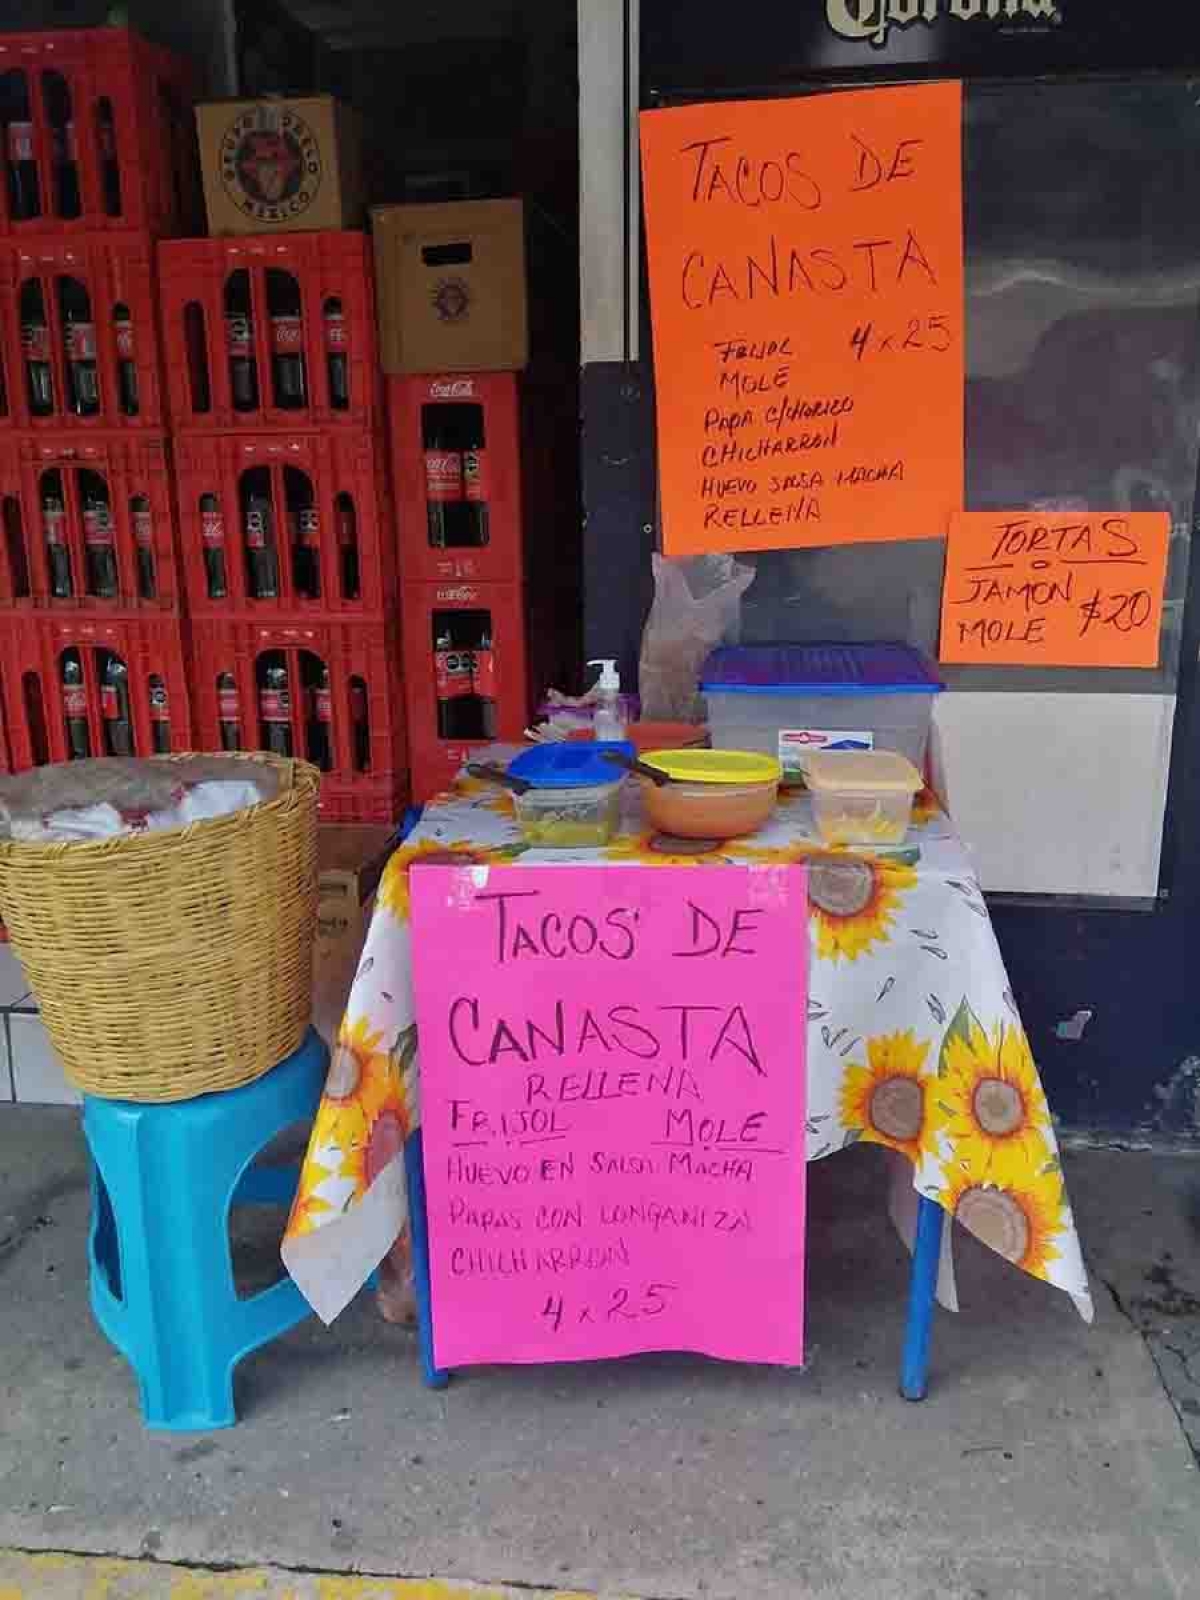 Corona
GRUPO MODELO
MÉXICO
TACOS DE
CANASTA
FRIJOL 4 x 25
MOLE
PAPA C/CHORIZO
CHICHARRON
HUEVO SALSA MACHA
RELLENA
TORTAS
JAMON $20
MOLE
Coca-Cola
Coca-Cola
TACOS DE
CANASTA
RELLENA
FRIJOL MOLE
HUEVO EN SALSA MACHA
PAPAS CON LONGANIZA
CHICHARRON
4 x 25